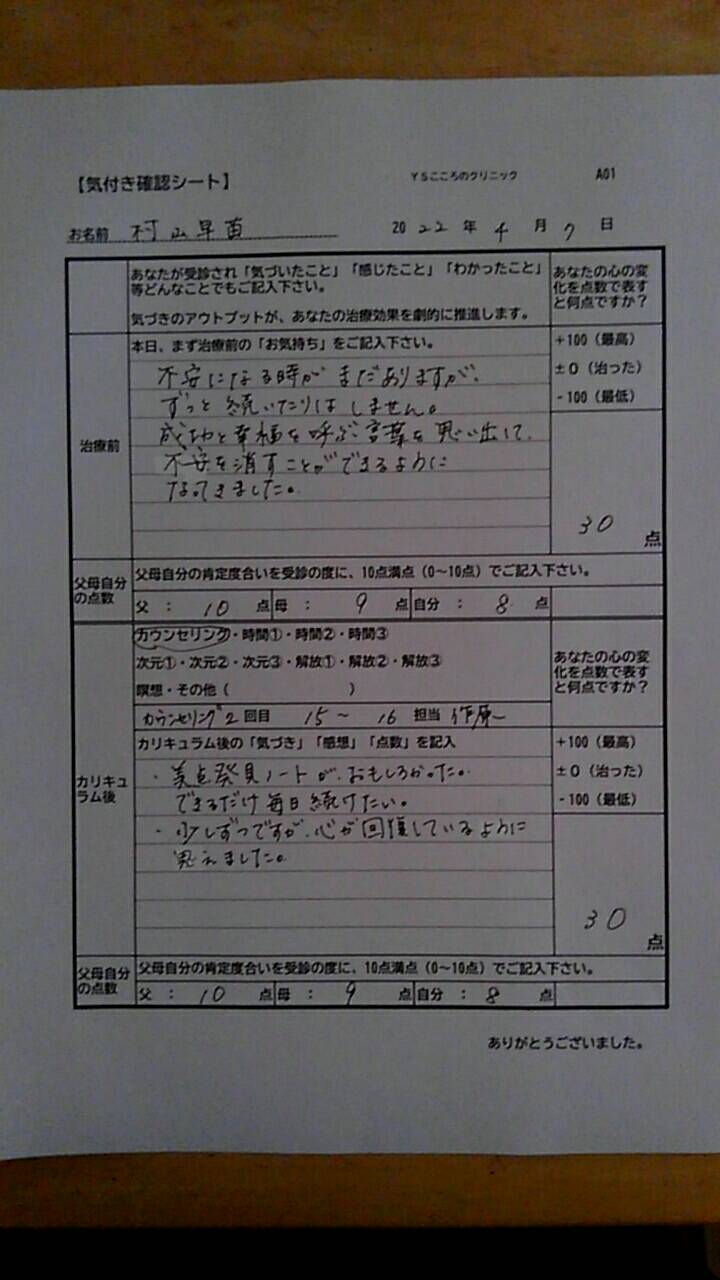 【気付き確認シート】 YSこころのクリニック A01
お名前 村山早苗 2022年4月7日
あなたが受診され「気づいたこと」「感じたこと」「わかったこと」
等どんなことでもご記入下さい。
気づきのアウトプットが、あなたの治療効果を劇的に推進します。
あなたの心の変
化を点数で表す
と何点ですか?
治療前
本日、まず治療前の「お気持ち」をご記入下さい。
不安になる時がまだありますが、
ずっと続いたりはしません。
成功と幸福を呼ぶ言葉を思い出して、
不安を消すことができるように
なってきました。
+100(最高)
±0(治った)
-100(最低)
30点
父母自分
の点数
父母自分の肯定度合いを受診の度に、10点満点(0~10点)でご記入下さい。
父: 10点 母: 9点 自分: 8点
カリキュ
ラム後
カウンセリング・時間①・時間②・時間③
次元①・次元②・次元③・解放①・解放②・解放③
瞑想・その他( )
カウンセリング2回目 15~16 担当 作原
あなたの心の変
化を点数で表す
と何点ですか?
カリキュラム後の「気づき」「感想」「点数」を記入
・美点発見ノートが、おもしろかった。
できるだけ毎日続けたい。
・少しずつですが、心が回復しているように
思えました。
+100(最高)
±0(治った)
-100(最低)
30点
父母自分
の点数
父母自分の肯定度合いを受診の度に、10点満点(0~10点)でご記入下さい。
父: 10点 母: 9点 自分: 8点
ありがとうございました。